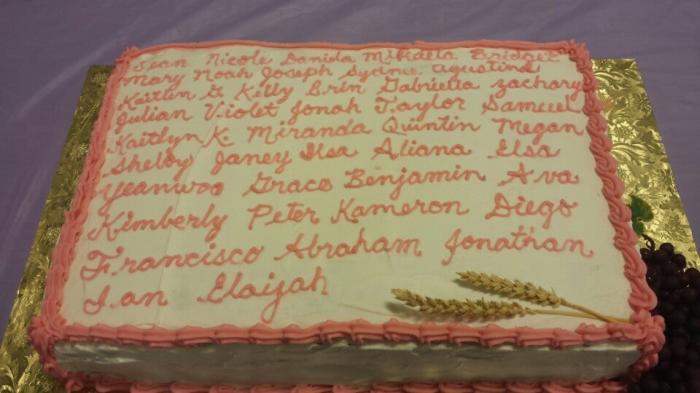 Sean Nicole Daniela Mikaela Bridget
Mary Noah Joseph Sydnie Agustina
Kaitlin G Kelly Erin Gabriella Zachary
Julian Violet Jonah Taylor Samuel
Kaitlyn K. Miranda Quintin Megan
Shelby Janey Ilsa Aliana Elsa
Yeanwoo Grace Benjamin Ava
Kimberly Peter Kameron Diego
Francisco Abraham Jonathan
Ian Elaijah